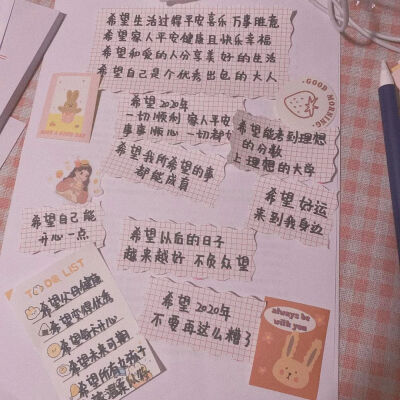 希望生活过得平安喜乐 万事胜意
希望家人平安健康且快乐幸福
希望和爱的人分享美好的生活
希望自己是个优秀出色的大人
GOOD MORNING
希望 2020年
一切顺利 家人平安
事事顺心 一切都好
希望能考到理想
的分数
上理想的大学
希望我所希望的事
都能成真
希望好运
来到我身边
希望自己能
开心一点
希望以后的日子
越来越好 不负众望
TO DO LIST
希望从目健康
希望变得优秀
希望每天开心
希望未来可期
希望所有女孩子
希望 2020年
不要再这么糟了
always be
with you